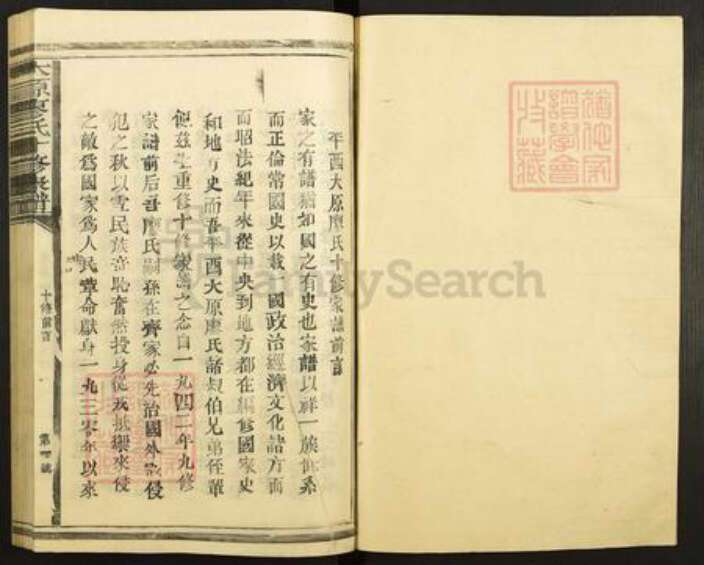 平酉大原廖氏十修家譜前言
家之有譜猶如國之有史也家譜以祥一族世系
而正倫常國史以載一國政治經濟文化諸方而
而昭法紀年來從中央到地方都在編修國家史
和地方史而吾平酉大原廖氏諸叔伯兄弟侄輩
重修十修家譜之念自一九四二年九修
家譜前后吾廖氏嗣孫在齊家必先治國外敵侵
犯之秋以雪民族奇恥奮然投身從戎抵擊來侵
之敵爲國家爲人民革命獻身一九三零年以來
原廖氏十修家譜
十修前言
第 號
FamilySearch